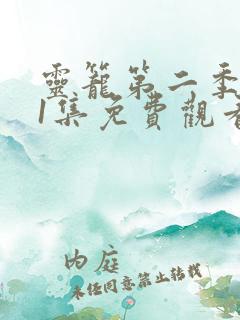 靈籠第二季
1集免費觀看
内庭
未经同意禁止转载